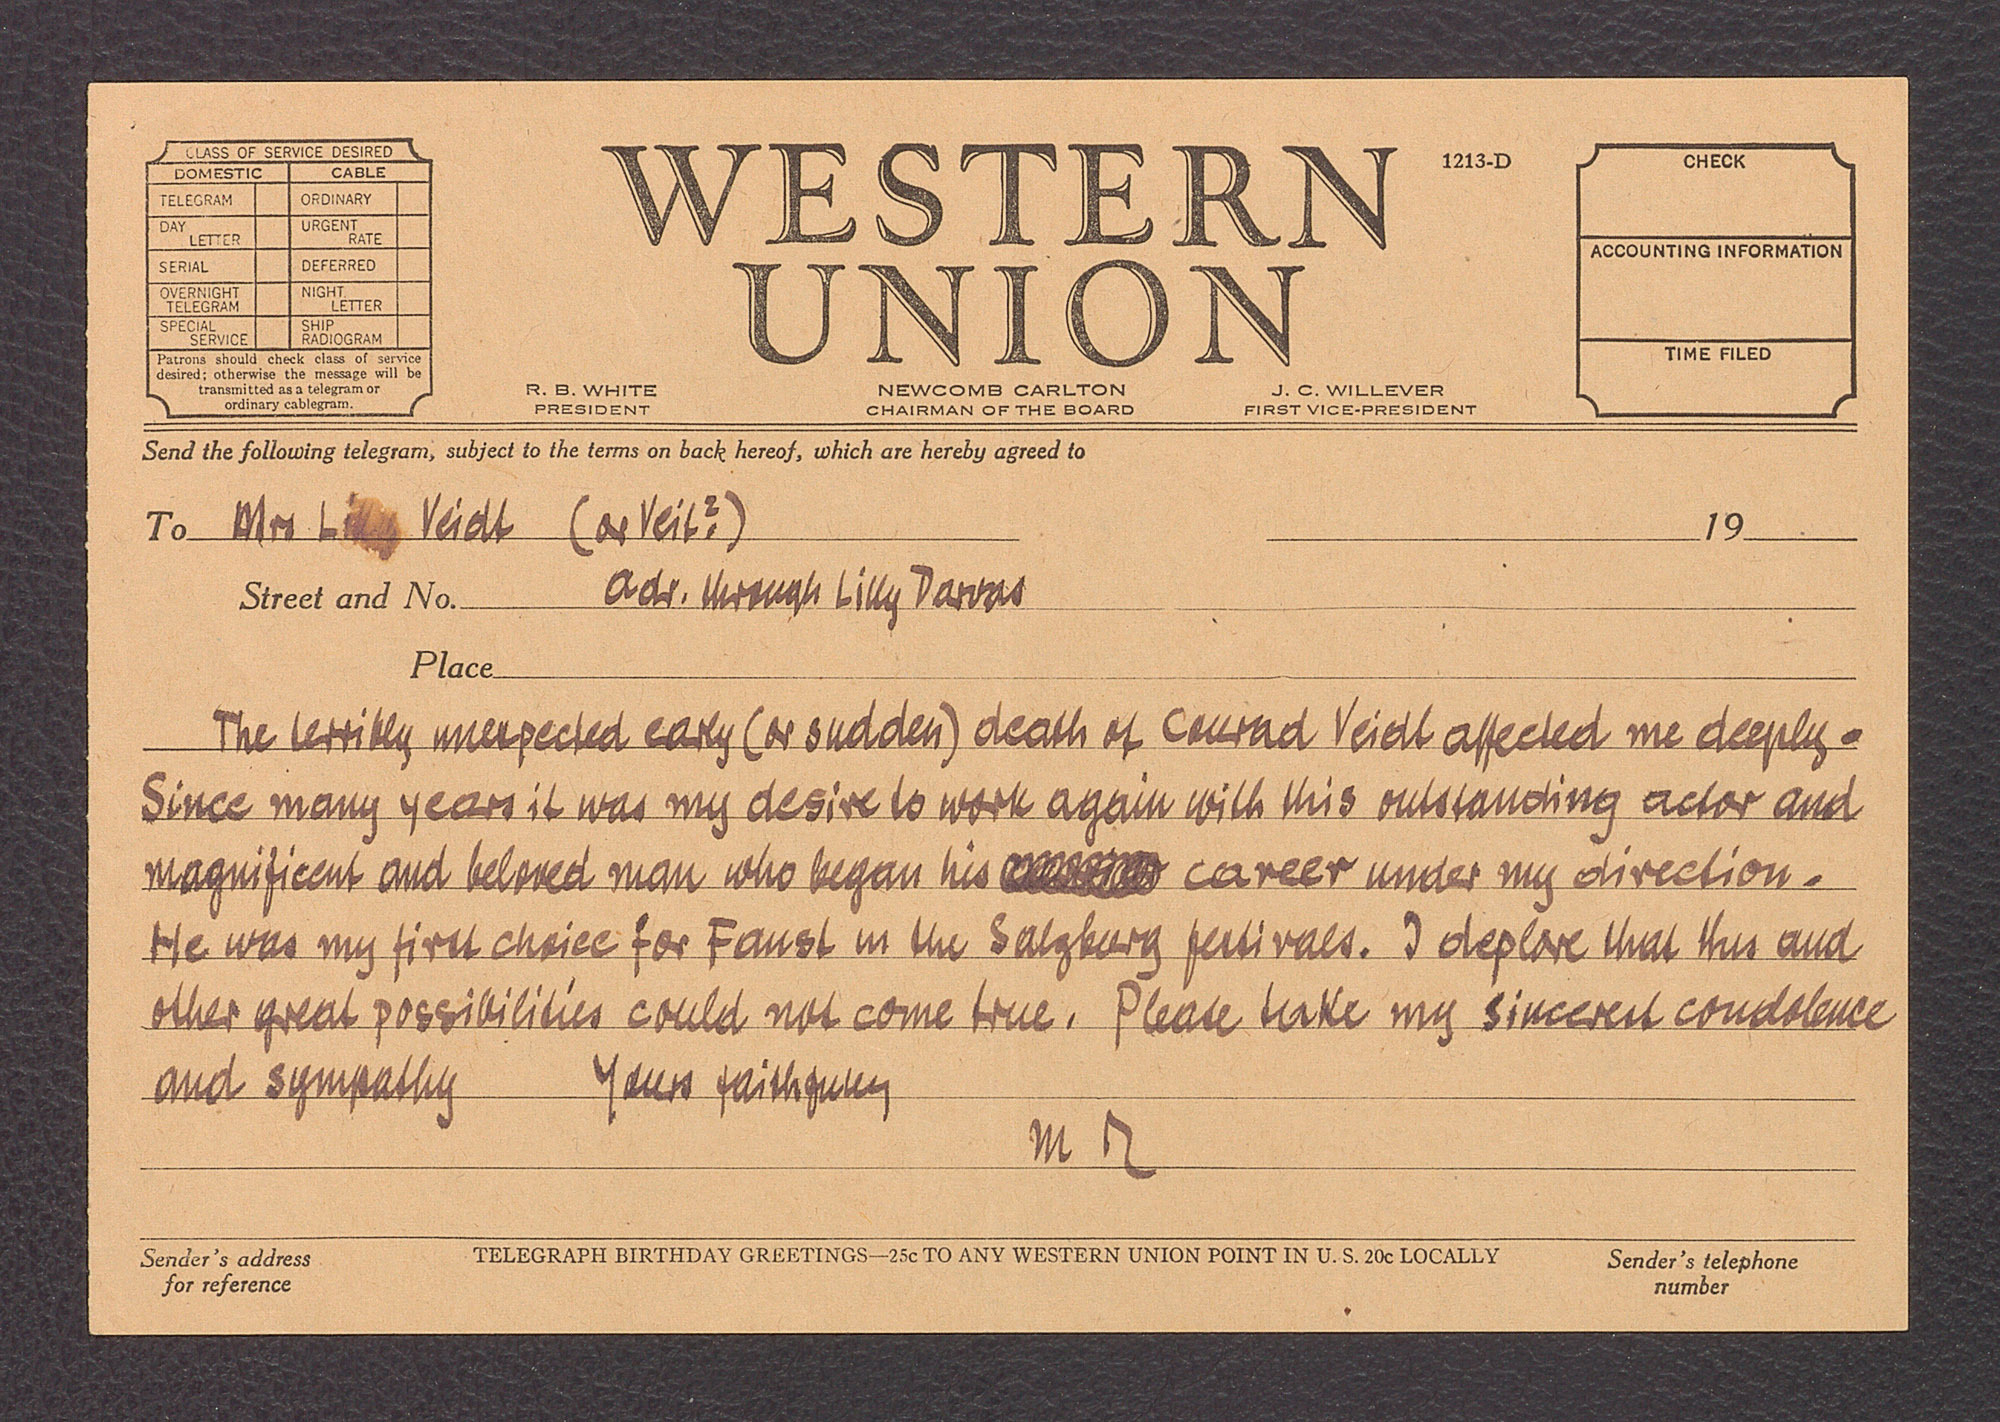 CLASS OF SERVICE DESIRED
DOMESTIC CABLE
TELEGRAM ORDINARY
DAY LETTER URGENT RATE
SERIAL DEFERRED
OVERNIGHT TELEGRAM NIGHT LETTER
SPECIAL SERVICE SHIP RADIOGRAM
Patrons should check class of service
desired; otherwise the message will be
transmitted as a telegram or
ordinary cablegram.
WESTERN
UNION
1213-D
R. B. WHITE
PRESIDENT
NEWCOMB CARLTON
CHAIRMAN OF THE BOARD
J. C. WILLEVER
FIRST VICE-PRESIDENT
CHECK
ACCOUNTING INFORMATION
TIME FILED
Send the following telegram, subject to the terms on back hereof, which are hereby agreed to
To Mrs Lilly Veidt (or Veit?) 19
Street and No. adr. through Lilly Darvas
Place
The terribly unexpected early (or sudden) death of Conrad Veidt affected me deeply.
Since many years it was my desire to work again with this outstanding actor and
magnificent and beloved man who began his career under my direction.
He was my first choice for Faust in the Salzburg festivals. I deplore that this and
other great possibilities could not come true. Please take my sincerest condolence
and sympathy Yours faithfully
M R
Sender's address
for reference
TELEGRAPH BIRTHDAY GREETINGS—25c TO ANY WESTERN UNION POINT IN U. S. 20c LOCALLY
Sender's telephone
number